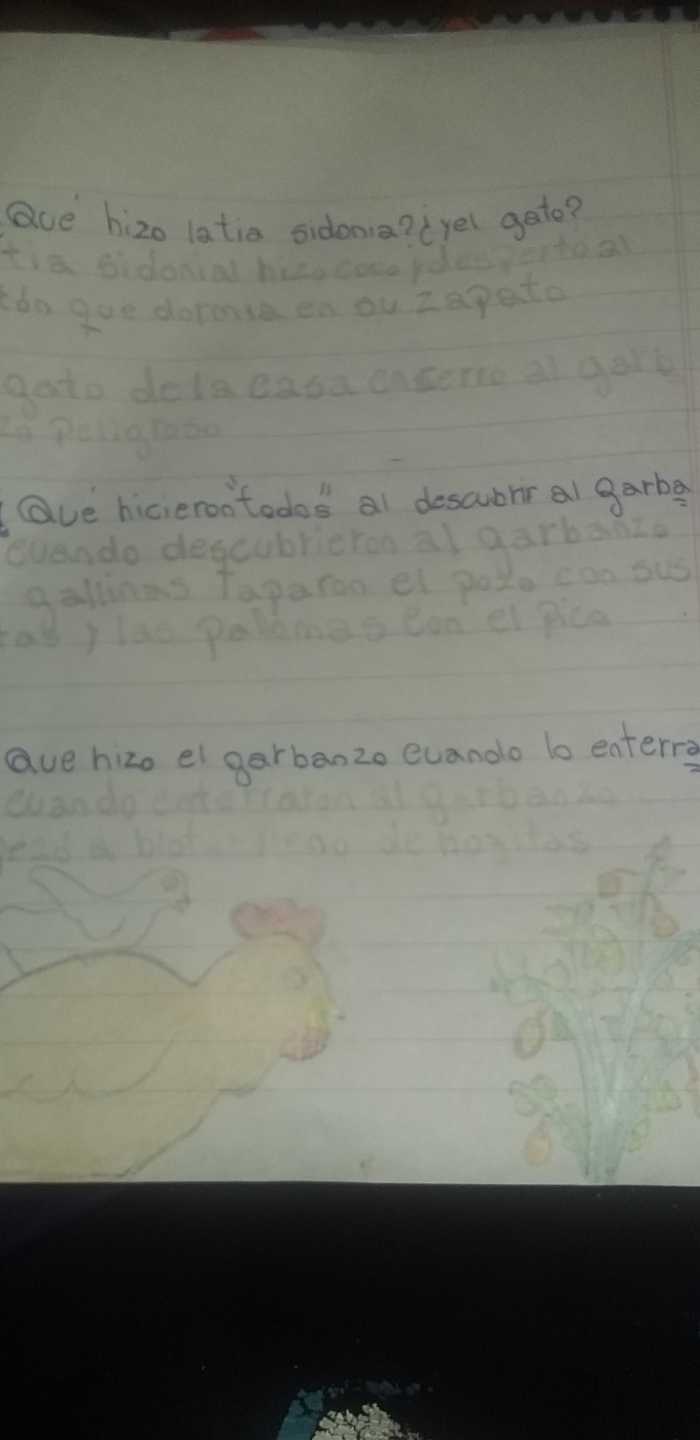 Qué hizo latia sidonia? ¿yel gato?
tia sidonia hizo coco y desperto al
tón que dormia en su zapato
gato dela casa encerro al garb
zo peligroso
¿Qué hicieron "todos" al descubrir al garba
cuando descubrieron al garbanzo
gallinas taparon el pozo con sus
tas y las palomas con el pico
Que hizo el garbanzo cuando lo enterra
cuando enterraron al garbanzo
pezó a de hojitas